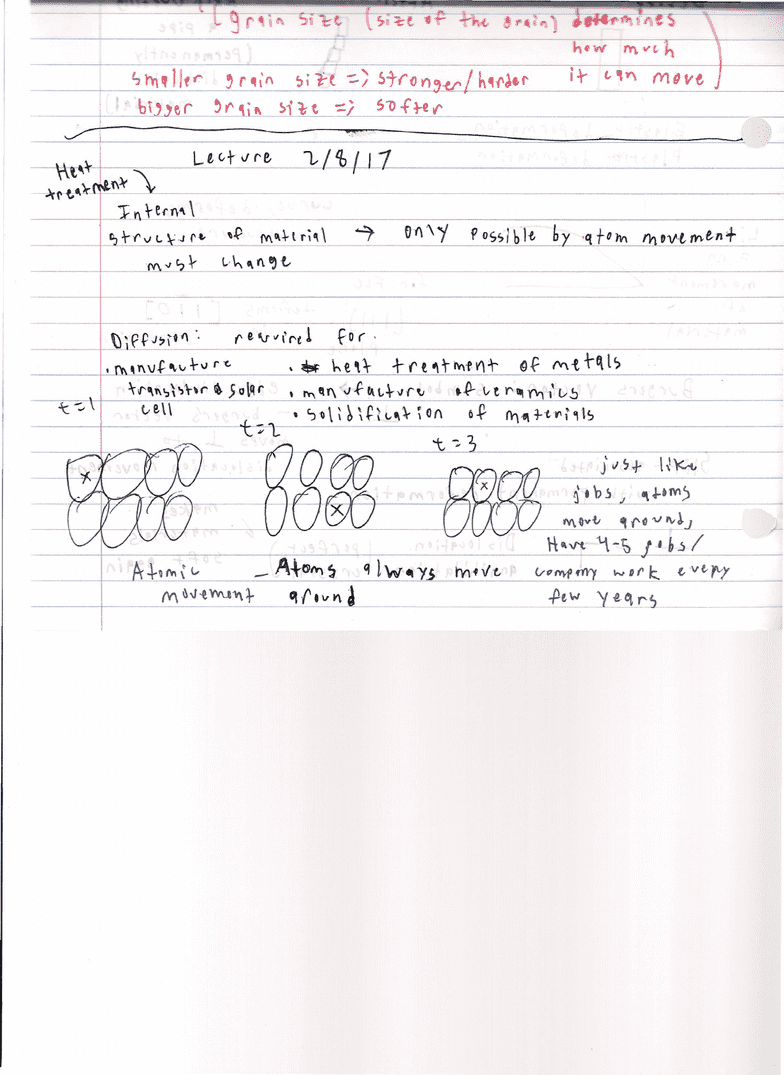 [grain size (size of the grain) determines
how much
it can move]
smaller grain size => stronger/harder
bigger grain size => softer
Lecture 2/8/17
Heat
treatment
Internal
structure of material → only possible by atom movement
must change
Diffusion: required for:
• manufacture
transistor & solar
cell
• heat treatment of metals
• manufacture of ceramics
• solidification of materials
t=1
t=2
t=3
x
x
x
just like
jobs, atoms
move around,
Have 4-5 jobs/
company work every
few years
Atomic
movement
– Atoms always move
around